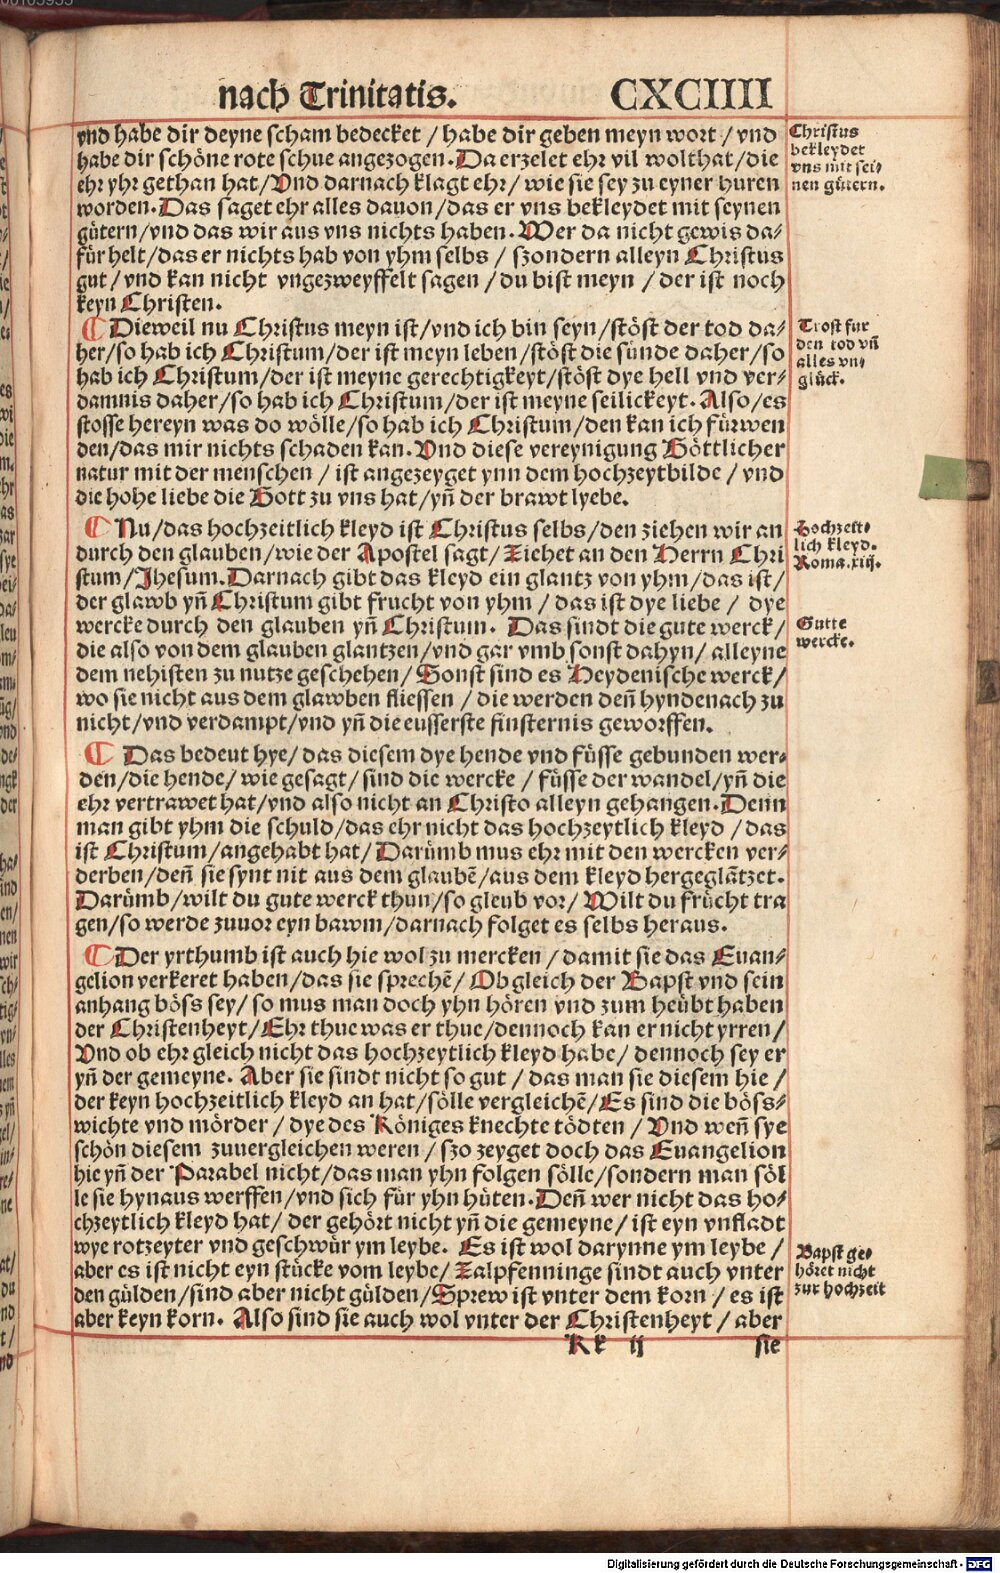 nach Trinitatis. CXCIIII
vnd habe dir deyne scham bedecket / habe dir geben meyn wort / vnd
habe dir schöne rote schue angezogen. Da erzelet ehr vil wolthat / die
ehr yhr gethan hat / Vnd darnach klagt ehr / wie sie sey zu eyner huren
worden. Das saget ehr alles dauon / das er vns bekleydet mit seynen
gütern / vnd das wir aus vns nichts haben. Wer da nicht gewis da⸗
für helt / das er nichts hab von yhm selbs / szondern alleyn Christus
gut / vnd kan nicht vngezweyffelt sagen / du bist meyn / der ist noch
keyn Christen.
Christus
bekleydet
vns mit sei⸗
nen gütern.
¶ Dieweil nu Christus meyn ist / vnd ich bin seyn / stöst der tod da⸗
her / so hab ich Christum / der ist meyn leben / stöst die sünde daher / so
hab ich Christum / der ist meyne gerechtigkeyt / stöst dye hell vnd ver⸗
damnis daher / so hab ich Christum / der ist meyne seilickeyt. Also / es
stosse hereyn was do wölle / so hab ich Christum / den kan ich fürwen
den / das mir nichts schaden kan. Vnd diese vereynigung Göttlicher
natur mit der menschen / ist angezeyget ynn dem hochzeytbilde / vnd
die hohe liebe die Gott zu vns hat / yñ der brawt lyebe.
Trost fur
den tod vñ
alles vn⸗
glück.
¶ Nu / das hochzeitlich kleyd ist Christus selbs / den ziehen wir an
durch den glauben / wie der Apostel sagt / Ziehet an den Herrn Chri
stum / Jhesum. Darnach gibt das kleyd ein glantz von yhm / das ist /
der glawb yñ Christum gibt frucht von yhm / das ist dye liebe / dye
wercke durch den glauben yñ Christum. Das sindt die gute werck /
die also von dem glauben glantzen / vnd gar vmb sonst dahyn / alleyne
dem nehisten zu nutze geschehen / Sonst sind es Heydenische werck /
wo sie nicht aus dem glawben fliessen / die werden deñ hyndenach zu
nicht / vnd verdampt / vnd yñ die eusserste finsternis geworffen.
Hochzeit⸗
lich kleyd.
Roma.xiij.
Gutte
wercke.
¶ Das bedeut hye / das diesem dye hende vnd füsse gebunden wer⸗
den / die hende / wie gesagt / sind die wercke / füsse der wandel / yñ die
ehr vertrawet hat / vnd also nicht an Christo alleyn gehangen. Denn
man gibt yhm die schuld / das ehr nicht das hochzeytlich kleyd / das
ist Christum / angehabt hat / Darümb mus ehr mit den wercken ver⸗
derben / deñ sie synt nit aus dem glaubē / aus dem kleyd hergeglātzet.
Darümb / wilt du gute werck thun / so gleub vor / Wilt du frücht tra
gen / so werde zuuor eyn bawm / darnach folget es selbs heraus.
¶ Der yrthumb ist auch hie wol zu mercken / damit sie das Euan⸗
gelion verkeret haben / das sie sprechē / Ob gleich der Bapst vnd sein
anhang böss sey / so mus man doch yhn hören vnd zum heübt haben
der Christenheyt / Ehr thue was er thue / dennoch kan er nicht yrren /
Vnd ob ehr gleich nicht das hochzeytlich kleyd habe / dennoch sey er
yñ der gemeyne. Aber sie sindt nicht so gut / das man sie diesem hie /
der keyn hochzeitlich kleyd an hat / sölle vergleichē / Es sind die böss⸗
wichte vnd mörder / dye des Königes knechte tödten / Vnd weñ sye
schön diesem zuuergleichen weren / szo zeyget doch das Euangelion
hie yñ der Parabel nicht / das man yhn folgen sölle / sondern man söl
le sie hynaus werffen / vnd sich für yhn hüten. Deñ wer nicht das ho⸗
chzeytlich kleyd hat / der gehört nicht yñ die gemeyne / ist eyn vnfladt
wye rotzeyter vnd geschwür ym leybe. Es ist wol darynne ym leybe /
aber es ist nicht eyn stücke vom leybe / Zalpfenninge sindt auch vnter
den gülden / sind aber nicht gülden / Sprew ist vnter dem korn / es ist
aber keyn korn. Also sind sie auch wol vnter der Christenheyt / aber
Bapst ge⸗
höret nicht
zur hochzeit
Kk ij sie
Digitalisierung gefördert durch die Deutsche Forschungsgemeinschaft - DFG